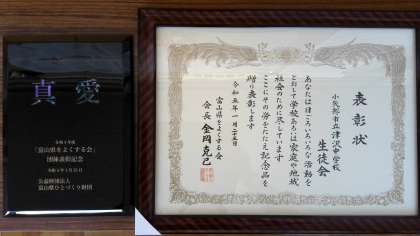 真 愛
令和4年度
「富山県をよくする会」
団体表彰記念
令和5年1月25日
公益財団法人
富山県ひとづくり財団
表彰状
小矢部市立津沢中学校
生徒会
あなたは種々いろいろな活動を
とおして学校あるいは家庭や地域
社会のために尽しています
ここにその労をたたえ記念品を
贈り表彰します
令和五年一月二十五日
富山県をよくする会
会長 金岡克己